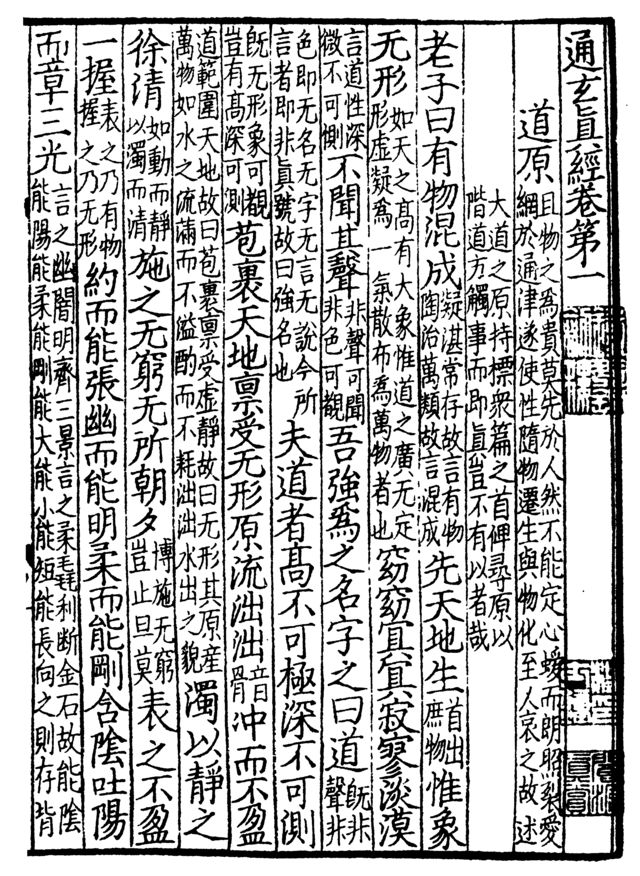 通玄眞經卷第一
道原且物之為貴莫先於人然不能定心蝯而朗照裂愛綱於通津遂使性隨物遷生與物化至人哀之故述
大道之原持標衆篇之首俾尋原以階道方觸事而即眞豈不有以者哉
老子曰有物混成凝湛常存故言有物陶冶萬類故言混成先天地生首出庶物惟象
无形如天之高有大象惟道之廣无定形虛凝為一氣散布為萬物者也窈窈冥冥寂寥淡漠
言道性深微不可測不聞其聲非聲可聞非色可觀吾強爲之名字之曰道旣非聲非
色即无名无字无言无說今所言者即非眞號故曰強名也夫道者高不可極深不可測
旣无形象可觀豈有高深可測苞裹天地禀受无形原流泏泏音骨冲而不盈
道範圍天地故曰苞裹禀受虛靜故曰无形其原產萬物如水之流滿而不溢酌而不耗泏泏水出之貌濁以靜之
徐清如動而靜以濁而清施之无窮无所朝夕博施无窮豈止旦莫表之不盈
一握表之乃有物握之乃无形約而能張幽而能明柔而能剛含陰吐陽
而章三光言之幽闇明齊三景言之柔毳利斷金石故能陰能陽能柔能剛能大能小能短能長向之則存背